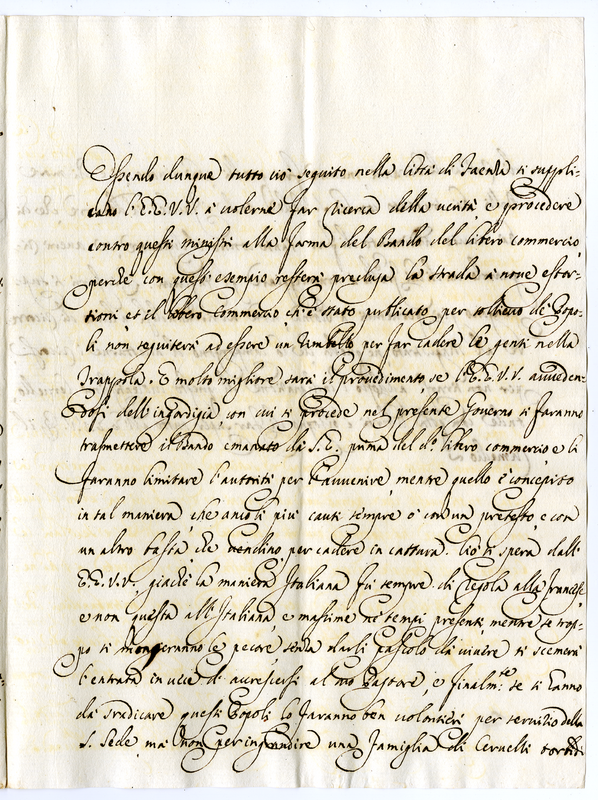 Essendo dunque tutto ciò seguito nella Città di Faenza si suppli-
cano l'E.E.V.V. à volerne far ricerca della verità, e procedere
contro questi ministri alla forma del Bando del libero commercio,
perche con questi esempio resterà preclusa la strada à nove estor-
tioni et il libero Commercio ch'è stato publicato per sollievo de Popo-
li non seguiterà ad essere un Zimbello per far cadere le genti nella
Trappola. E molto migliore sarà il provedimento se l'E.E.V.V. avveden-
dosi dell'ingordigia con cui si procede nel presente Governo si faranno
trasmettere il Bando emanato dà S.E. prima del do. libero commercio e li
faranno limitare l'autorità per l'avvenire, mentre quello è concepito
in tal maniera, che anco li più cauti sempre ò con un pretesto, e con
un altro basta, che vendino per cadere in cattura. Ciò si spera dall'
E.E.V.V., giache la maniera Italiana fù sempre di regola alla francese
e non questa all'Italiana, e massime ne' tempi presenti, mentre se trop-
po si mongeranno le pecore senza darli pascolo dà vivere si scemerà
l'entrata in vece di accrescersi al suo Pastore, e finalm.te se si hanno
dà sradicare questi Popoli lo faranno ben volontieri per servitio della
S. Sede, mà non per ingrandire una famiglia di Cervelli